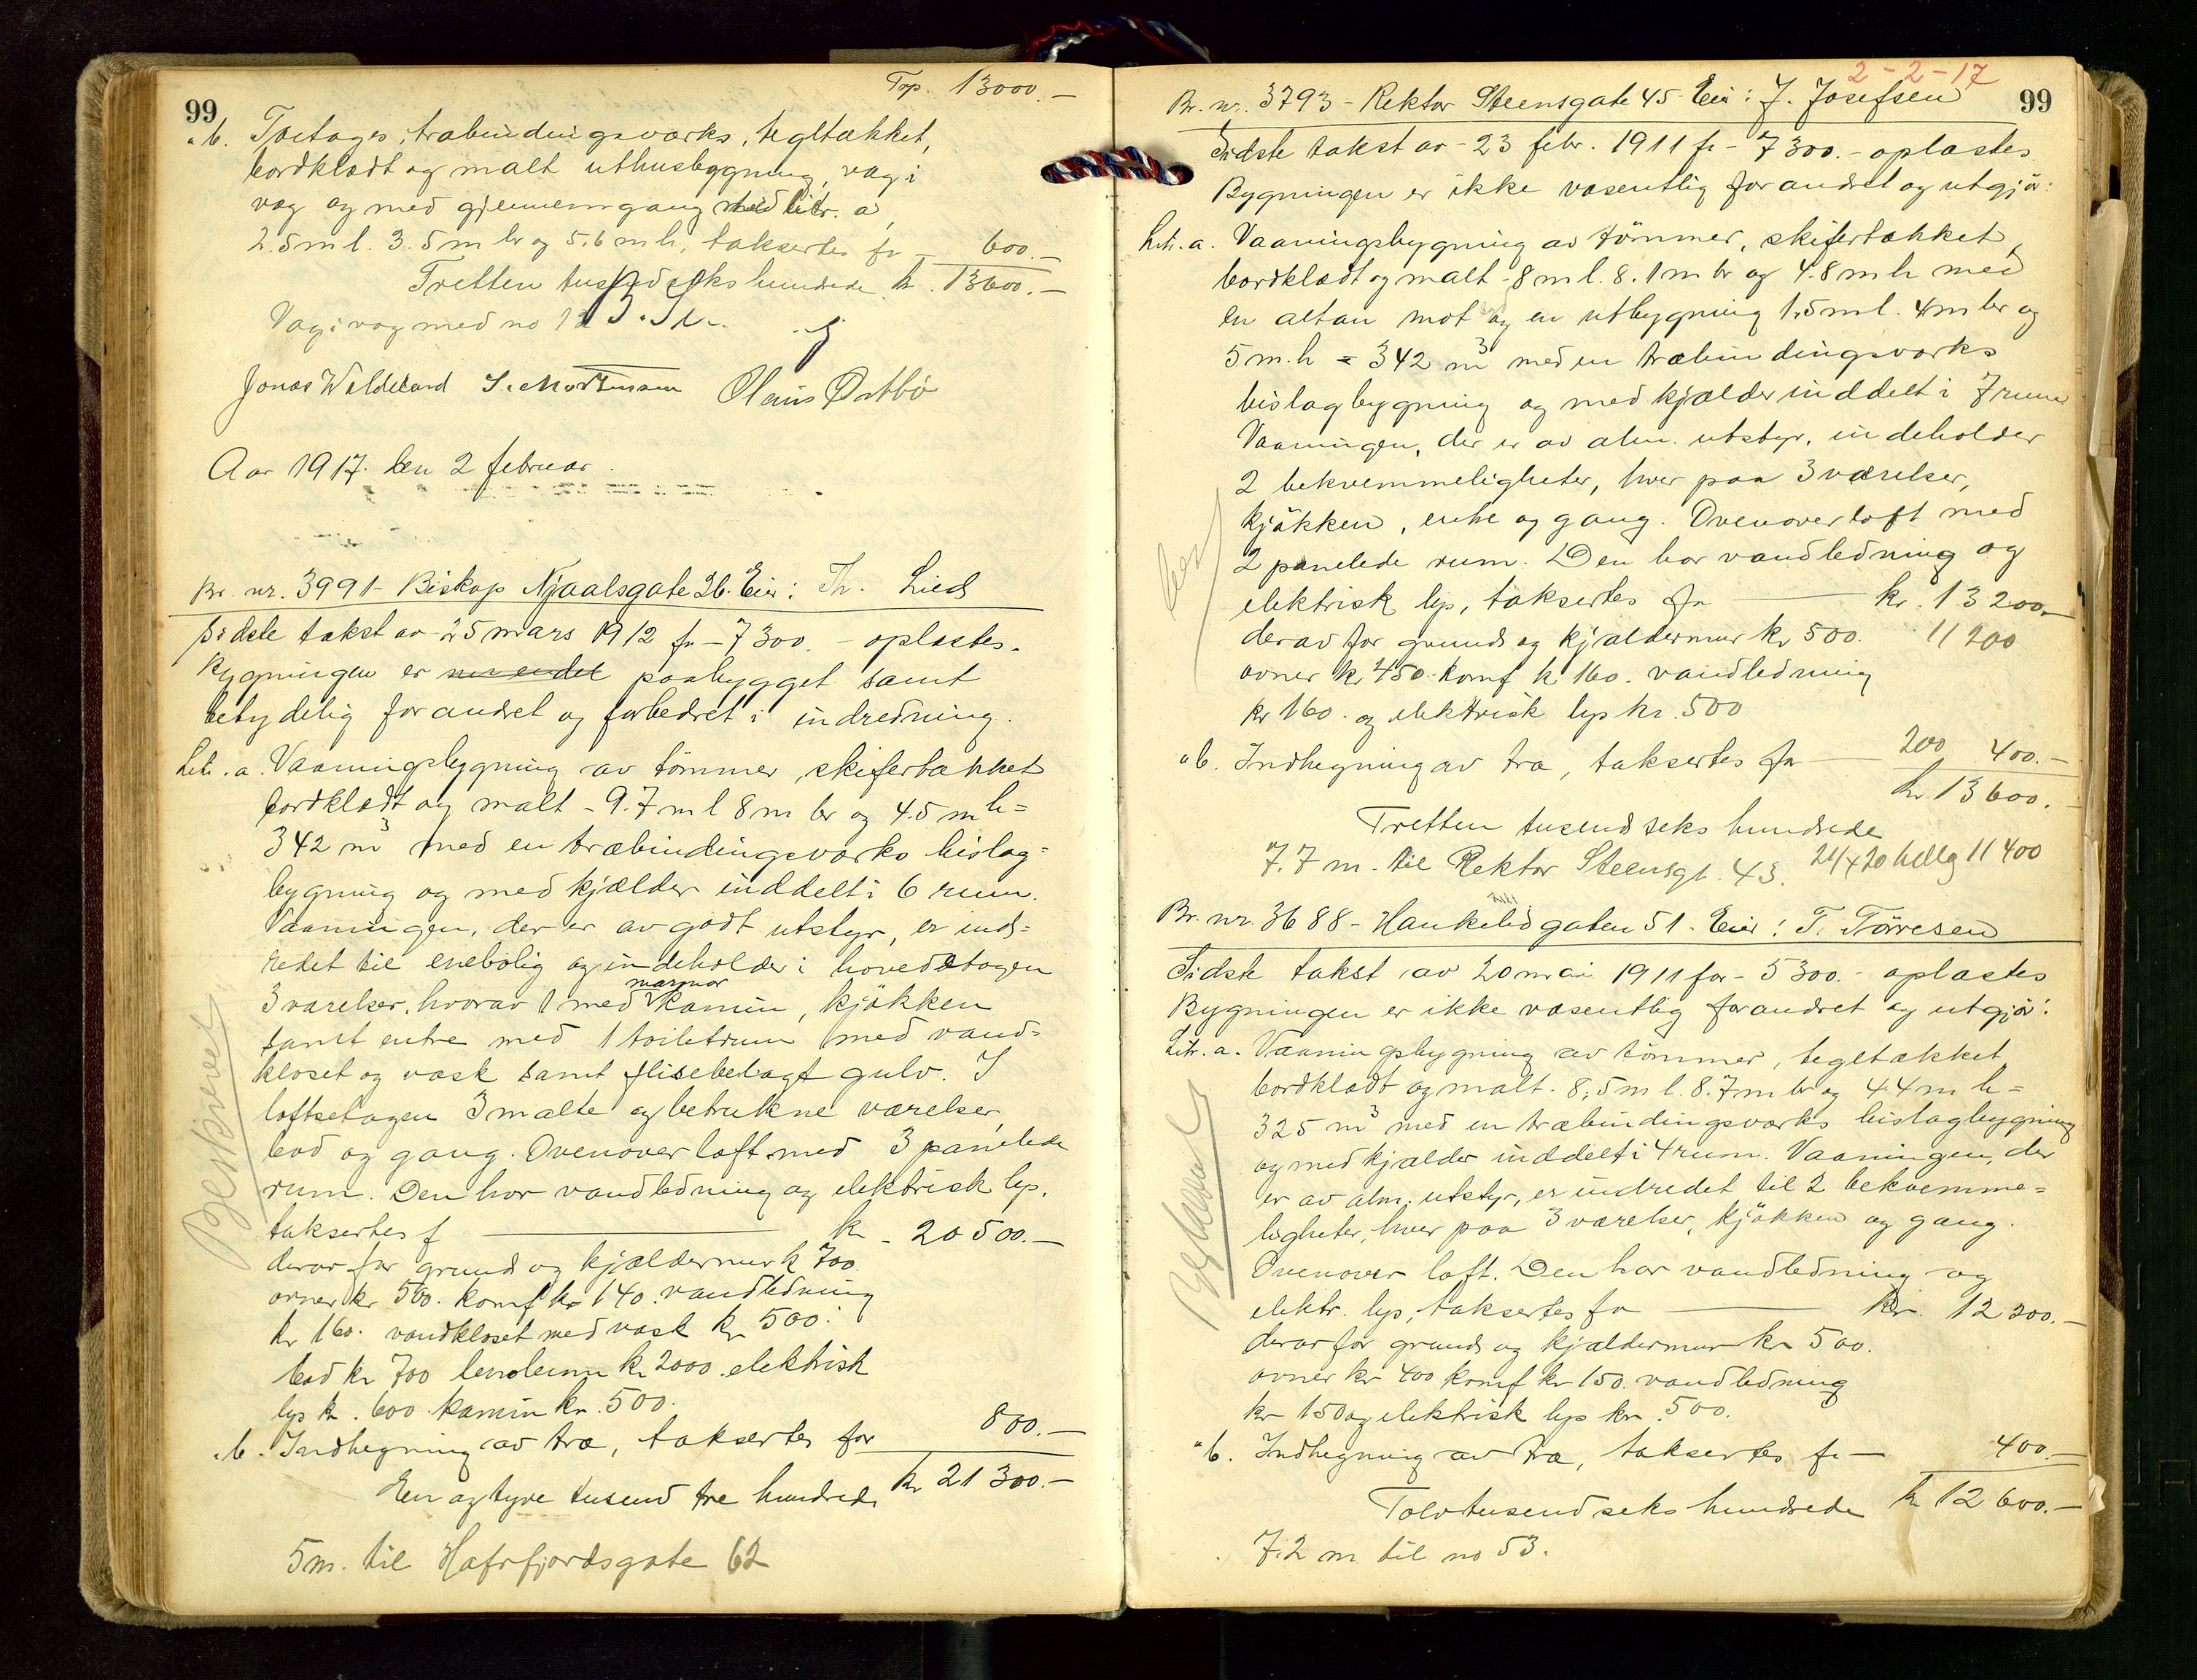 99
Trp. 13000.-
"b. Toetages, træbindingsværks, tegltækket,
bordklædt og malt uthusbygning, væg i
væg og med gjennemgang med litr. a,
2.5 m l. 3.5 m br og 5.6 m h, taksertes fr 600.-
Tretten tusend seks hundrede kr. 13600.-
Væg i væg med no
Jonas Waldeland S. Mortensen Olaus Østbö
Aar 1917. den 2 februar.
Br. nr. 3991 - Biskop Njaalsgate 26. Eier: Th. Lied
Sidste takst av 25 mars 1912 fr - 7300. - oplæstes.
Bygningen er paabygget samt
betydelig forandret og forbedret i indredning.
Litr. a. Vaaningsbygning av tömmer, skifertækket
bordklædt og malt - 9.7 m l 8 m br og 4.5 m h =
342 m3 med en træbindingsværks bislag=
bygning og med kjælder inddelt i 6 rum.
Vaaningen, der er av godt utstyr, er ind=
redet til enebolig og indeholder i hovedetagen
3 værelser, hvorav 1 med marmor kamin, kjökken
samt entre med 1 toiletrum med vand=
kloset og vask samt flisebelagt gulv. I
loftsetagen 3 malte og betrukne værelser,
bad og gang. Ovenover loft med 3 panelede
rum. Den har vandledning og elektrisk lys,
taksertes f kr - 20500.-
derav for grund og kjældermur k 700.
ovner kr 500. komf kr 140. vandledning
kr 160. vandkloset med vask kr 500.
bad kr 700 lenoleum kr 2000. elektrisk
lys kr. 600. kamin kr. 500.
"b. Indhegning av træ, taksertes for 800.-
En og tyve tusend tre hundrede kr 21300.-
5 m. til Hafrfjordsgate 62
Beskrevet
2-2-17
99
Br. nr. 3793 - Rektor Steensgate 45 - Eier: J. Josefsen
Sidste takst av - 23 febr. 1911 fr - 7300.- oplæstes.
Bygningen er ikke væsentlig forandret og utgjör:
Litr. a. Vaaningsbygning av tömmer, skifertækket,
bordklædt og malt - 8 m l. 8.1 m br og 4.8 m h med
en altan mot og en utbygning 1.5 m l. 4 m br og
5 m. h = 342 m3 med en træbindingsværks
bislagbygning og med kjælder inddelt i 7 rum
Vaaningen, der er av alm. utstyr, indeholder
2 bekvemmeligheter, hver paa 3 værelser,
kjökken, entre og gang. Ovenover loft med
2 panelede rum. Den har vandledning og
elektrisk lys, taksertes for kr. 13200.-
derav for grund og kjældermur kr 500. 11200
ovner kr 450. komf k 160. vandledning
kr 160. og elektrisk lys kr. 500
"b. Indhegning av træ, taksertes for 200 400.-
kr. 13600.
Tretten tusend seks hundrede
7.7 m. til Rektor Steensgt. 43. 21/4 20 11400
Br. nr. 3688 - Haukelidgaten 51 - Eier: T. Törresen
Sidste takst av 20 mai 1911 for - 5300.- oplæstes
Bygningen er ikke væsentlig forandret og utgjör:
Litr. a. Vaaningsbygning av tömmer, tegltækket,
bordklædt og malt. 8,5 m l. 8.7 m br og 4.4 m h =
325 m3 med en træbindingsværks bislagbygning
og med kjælder inddelt i 4 rum. Vaaningen, der
er av alm. utstyr, er indredet til 2 bekvemme=
ligheter, hver paa 3 værelser, kjökken og gang.
Ovenover loft. Den har vandledning og
elektr. lys, taksertes for kr. 12200.-
derav for grund og kjældermur kr 500.
ovner kr 400 komf kr 150. vandledning
kr 150 og elektrisk lys kr. 500.
"b. Indhegning av træ, taksertes fr - 400.-
Tolvtusend seks hundrede kr 12600.-
7.2 m til no 53.
Beskrevet